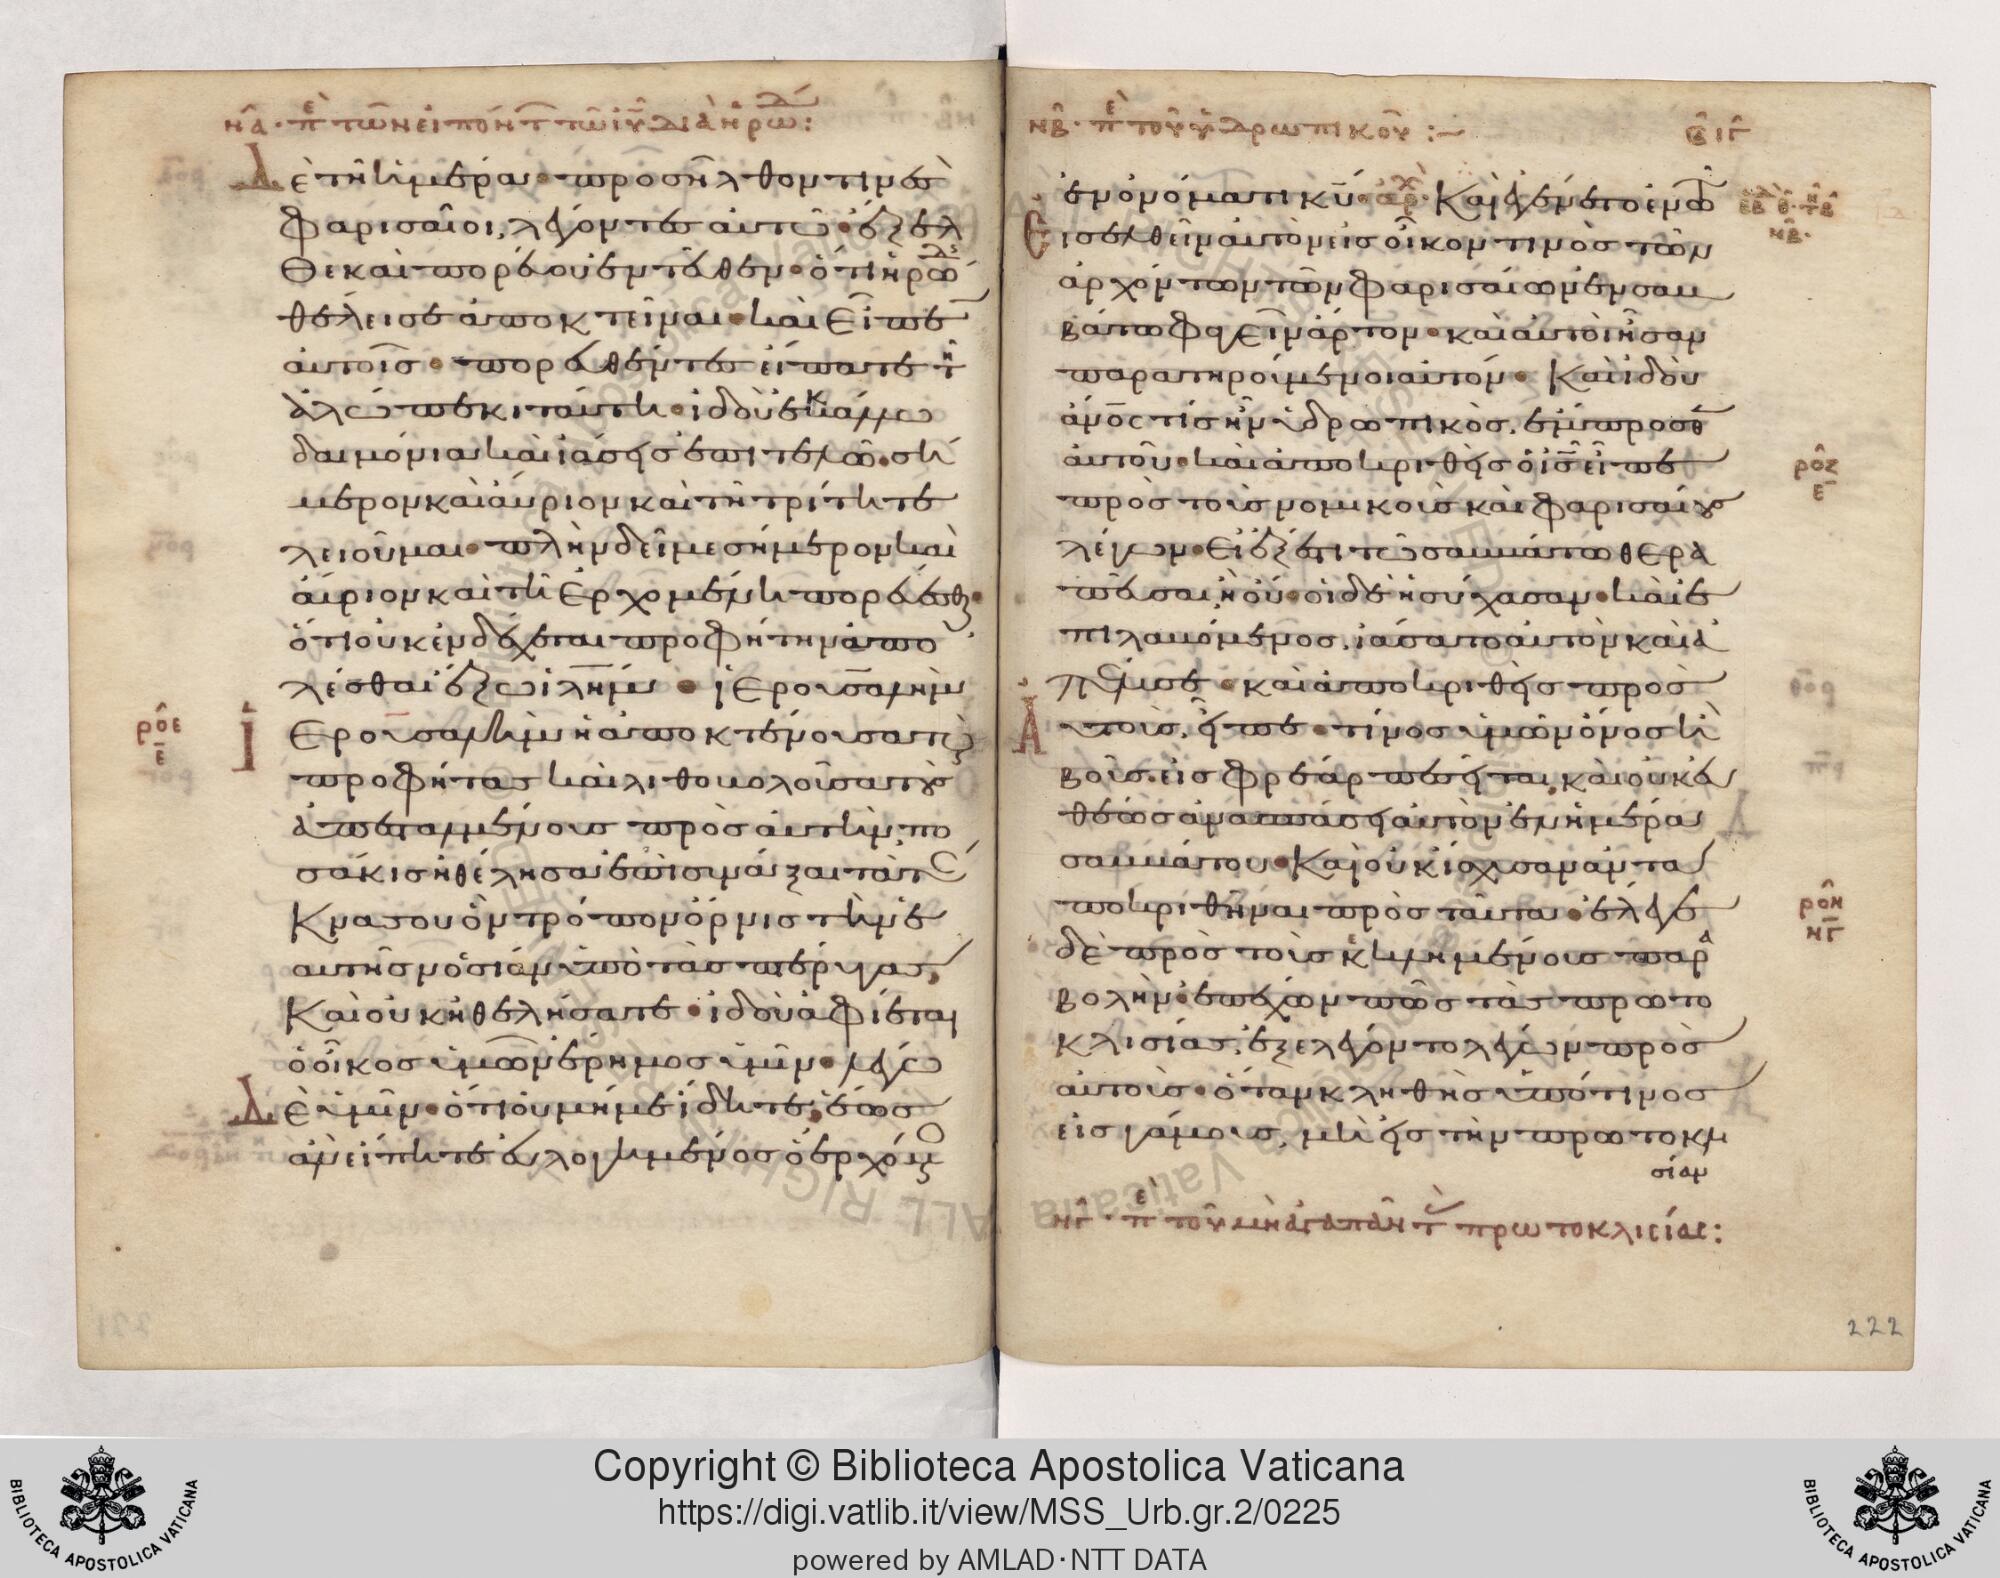 να· πε τῶν εἰπόντ τῶ ιυ διὰ ἡρώδ:
δὲ τῆ ἡμέρα· προσῆλθον τινὲσ
φαρισαῖοι, λέγοντεσ αυτῶ· ἔξελ
θε καὶ πορεύου ἐντεῦθεν· ὅτι ἡρώδ
θέλει σε ἀποκτεῖναι· καὶ εἶπε
αυτοῖσ· πορευθέντεσ εἴπατε τῆ
ἀλώπεκι ταύτη· ἰδοὺ ἐκβάλλω
δαιμόνια καὶ ἰάσεισ ἐπιτελῶ· σή
μερον καὶ ἄυριον καὶ τῆ τρίτη τε
λειοῦμαι· πλὴν δεῖ με σήμερον καὶ
ἄυριον καὶ τῆ ἐρχομένη πορεύεσθαι·
ὅτι οὐκ ἐνδέχεται προφήτην ἀπο
λέσθαι ἔξω ἱλήμ· ἱερουσαλὴμ
ἱερουσαλὴμ ἡ ἀποκτένουσα τοὺσ
προφήτασ καὶ λιθοβολοῦσα τοὺσ
ἀπεσταλμένουσ πρὸσ ἀυτὴν· πο
σάκισ ἠθέλησα ἐπισυνάξαι τὰ τέ
κνα σου ὃν τρόπον ὄρνισ τὴν ἑ
αυτῆσ νοσσιὰν ὑπὸ τὰσ πτέρυγασ,
καὶ οὐκ ἠθελήσατε· ἰδοὺ ἀφίεται
ὁ οἶκοσ ὑμῶν ἔρημοσ ὑμῖν· λέγω
δὲ ὑμῖν· ὅτι οὐ μή με ἴδητε· ἕωσ
ἂν εἴπητε ἐυλογημένοσ ὁ ἐρχόμ
ροε
ε
νβ· πε τοῦ ὑδρωπικοῦ :~
σιγ
ἐν ὀνόματι κυ· ἀρχ· Καὶ ἐγένετο ἐν τῶ
εἰσελθεῖν αυτὸν εἰσ οἶκον τινὸσ τῶν
ἀρχόντων τῶν φαρισαίων ἐν σαβ
βάτω φαγεῖν ἄρτον· καὶ αυτοὶ ἦσαν
παρατηρούμενοι αυτόν· καὶ ἰδοὺ
ανος τίσ ἦν ὑδρωπικὸσ, ἔμπροσθ
ἀυτοῦ· καὶ ἀποκριθεὶσ ὁ ισ εἶπε
πρὸσ τοὺσ νομικοὺσ καὶ φαρισαίουσ
λέγων· εἰ ἔξεστι τῶ σαββάτω θερα
πεῦσαι, ἢ οὔ· οἱ δὲ ἡσύχασαν· καὶ ἐ
πιλαβόμενοσ, ἰάσατο ἀυτὸν καὶ ἀ
πέλυσε· καὶ ἀποκριθεὶσ πρὸσ
ἀυτοὺσ, εἶπε· τίνοσ ὑμῶν ὄνοσ ἢ
βοῦσ, εἰσ φρέαρ πεσεῖται, καὶ οὐκ ἐυ
θέωσ ἀνασπάσει ἀυτὸν ἐν ἡμέρα
σαββάτου· Καὶ οὐκ ἴσχυσαν ἀντα
ποκριθῆναι πρὸσ ταῦτα· ἔλεγε
δὲ πρὸσ τοὺσ κεκλημένουσ παρα
βολὴν· ἐπέχων πῶσ τὰσ πρωτο
κλισίασ, ἐξελέγοντο λέγων πρὸσ
αυτοὺσ· ὅταν κληθῆσ ὑπό τινοσ
εἰσ γάμουσ, μὴ εἰσ τὴν πρωτοκλι
σίαν
νγ· πε τοῦ μὴ ἀγαπᾶν τὰσ πρωτοκλισίας:
ροζ
ε
ροη
νγ
222
Copyright © Biblioteca Apostolica Vaticana
https://digi.vatlib.it/view/MSS_Urb.gr.2/0225
powered by AMLAD·NTT DATA
BIBLIOTECA APOSTOLICA VATICANA
BIBLIOTECA APOSTOLICA VATICANA